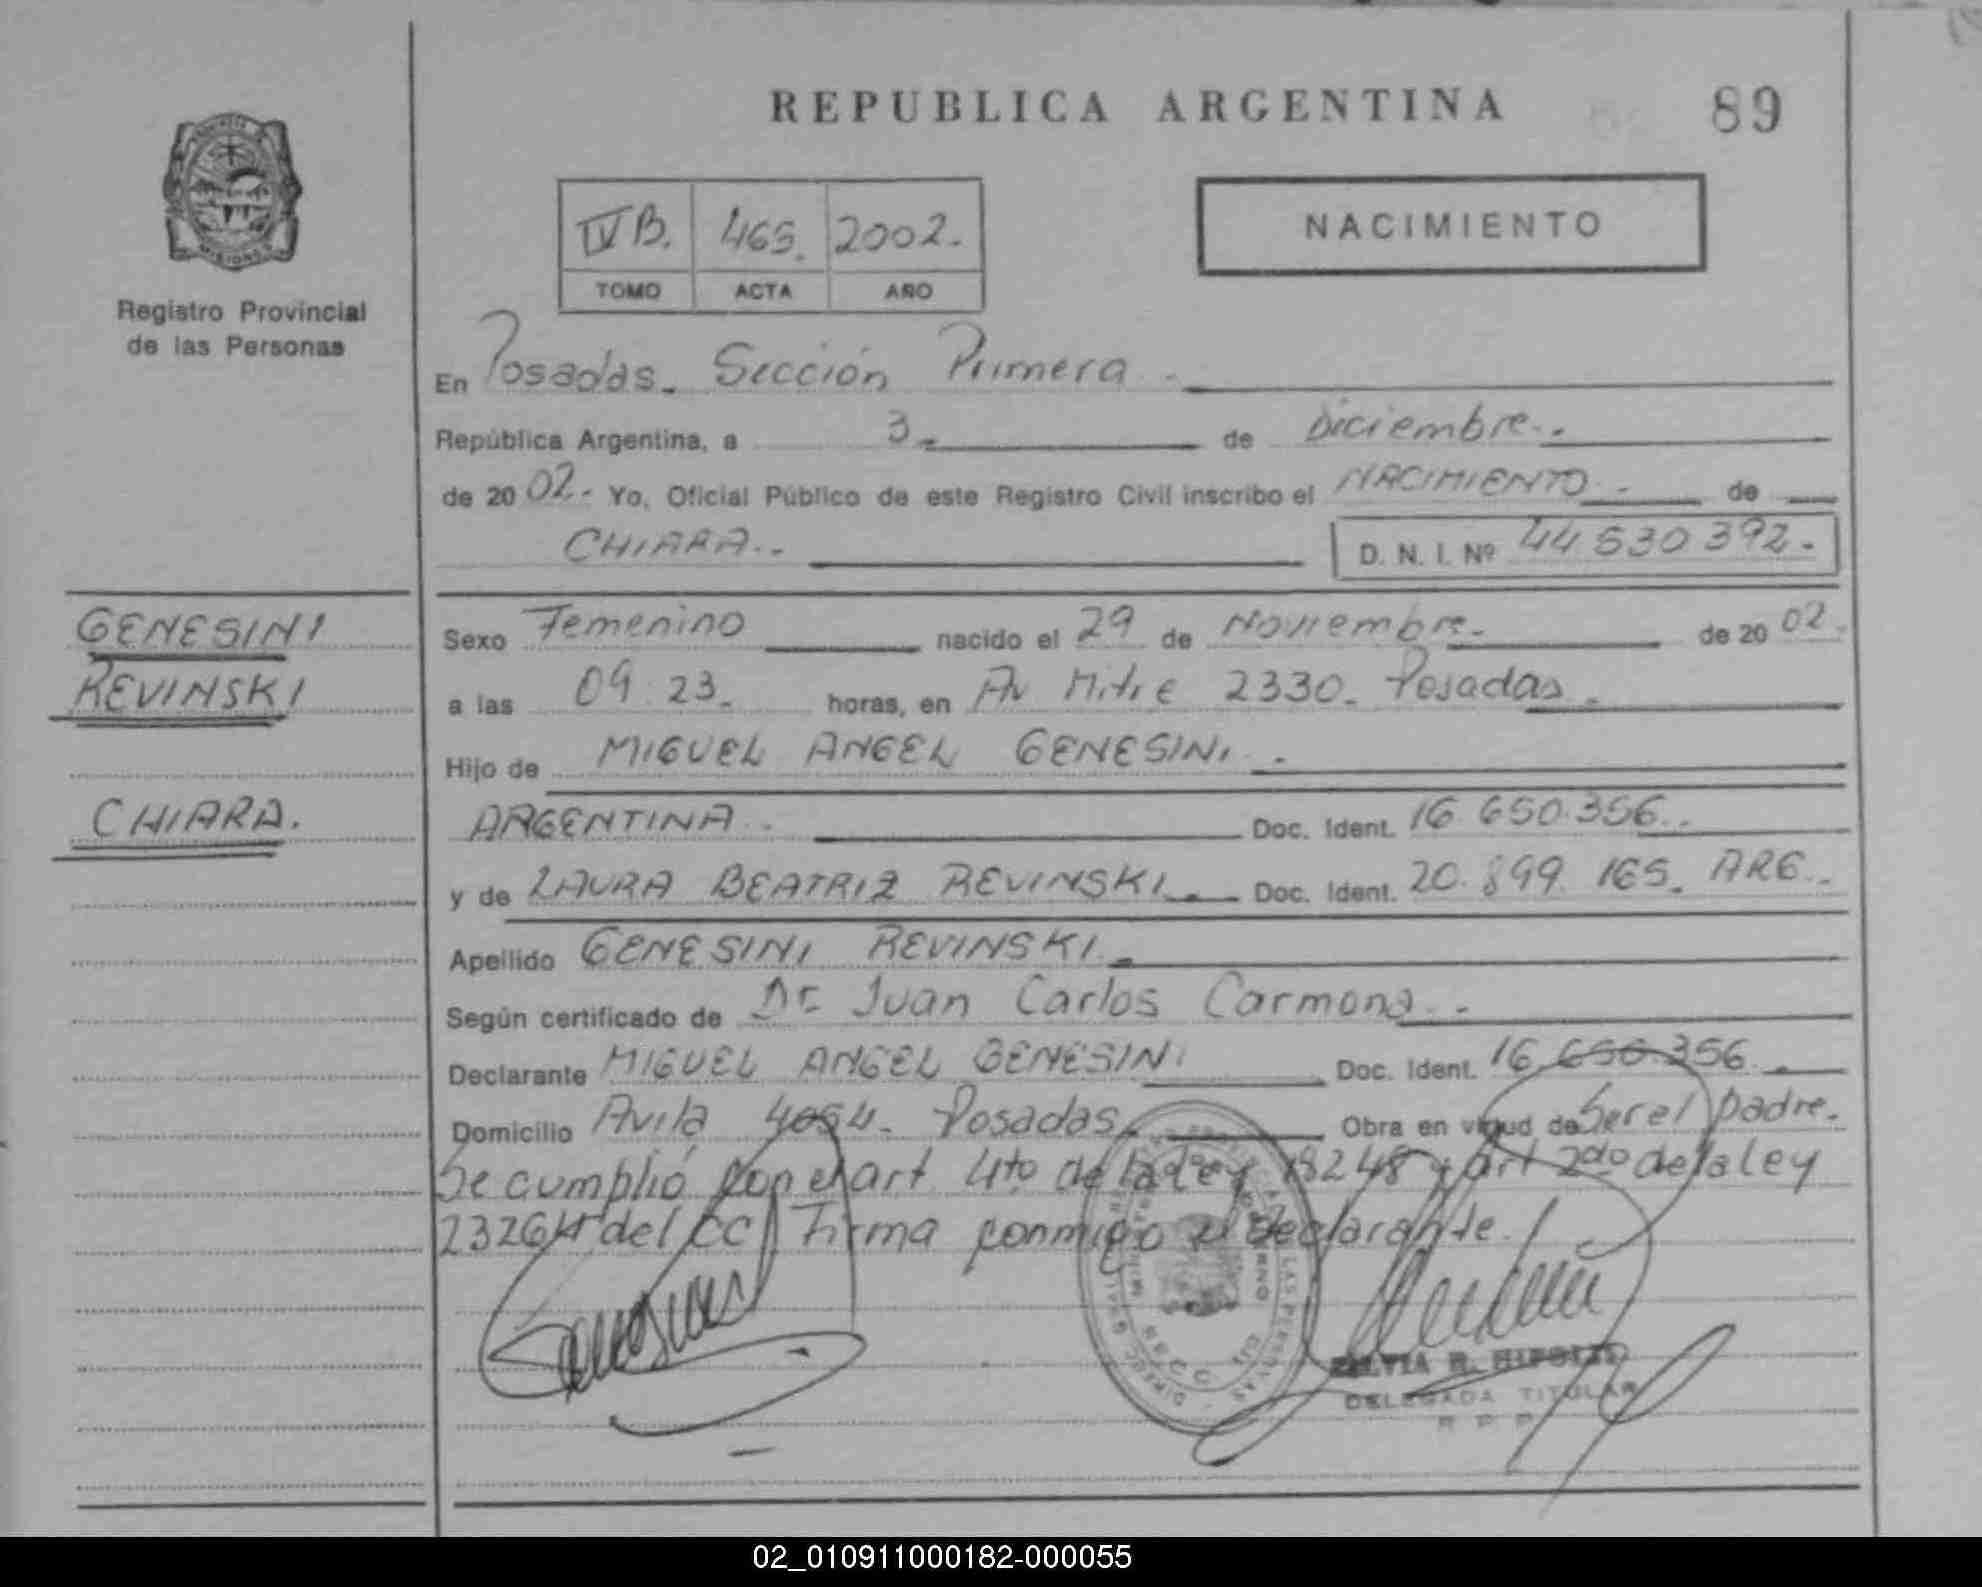 REPUBLICA ARGENTINA
89
NACIMIENTO
IV B. 465. 2002.
TOMO ACTA AÑO
Registro Provincial
de las Personas
En Posadas. Sección Primera
República Argentina, a 3 de Diciembre.
de 2002. Yo, Oficial Público de este Registro Civil inscribo el NACIMIENTO de
CHIARA. D. N. I. Nº 44 530 392.
GENESINI
REVINSKI
CHIARA.
Sexo Femenino nacido el 29 de Noviembre. de 2002.
a las 09 23. horas, en Av Mitre 2330. Posadas.
Hijo de MIGUEL ANGEL GENESINI.
ARGENTINA. Doc. Ident. 16 650.356.
y de LAURA BEATRIZ REVINSKI. Doc. Ident. 20.899 165. ARG.
Apellido GENESINI REVINSKI.
Según certificado de Dr. Juan Carlos Carmona.
Declarante MIGUEL ANGEL GENESINI Doc. Ident. 16 650 356.
Domicilio Avila Posadas. Obra en virtud de Ser el padre.
Se cumplió con el art. 4to de la ley 18248 y art 2do de la ley
23264 del CC. Firma conmigo el Declarante.
DELEGADA TITULAR
R P P
02_010911000182-000055